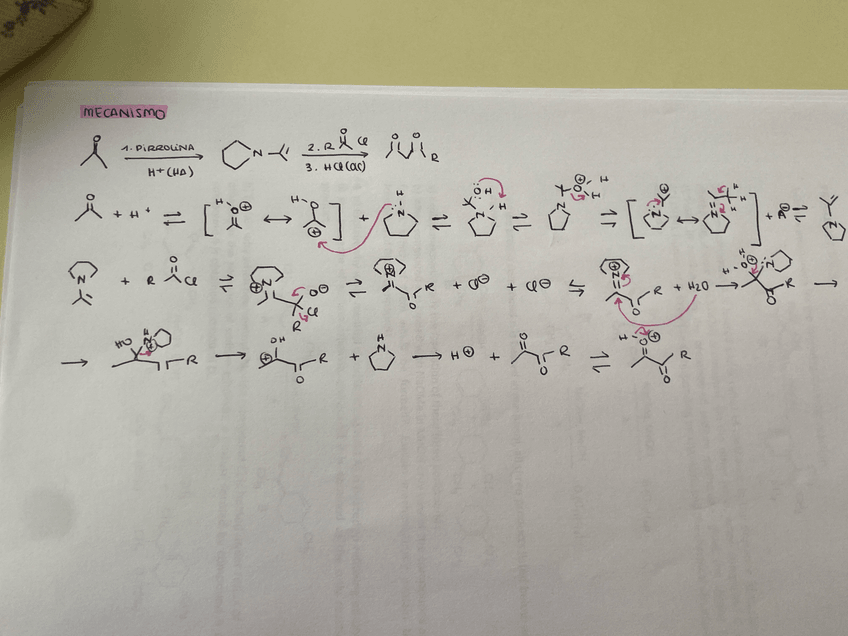 MECANISMO
O 1. PIRROLINA N 2. R O Cl O O R
H+(HA) 3. HCl(ac)
O + H+ ⇌ [ H O⊕ ↔ H O ⊕ ] + H N ⇌ OH H N ⇌ O⊕ H H N ⇌ [ ⊕ N ↔ N⊕ H H H ] + ⇌ N
N + R O Cl ⇌ N ⊕ O⊖ Cl R ⇌ N⊕ R O + Cl⊖ ⇌ N⊕ R O + H2O → H O⊕ N R O →
→ HO H N⊕ R → OH ⊕ R O + H N → H⊕ + O O R ⇌ H O⊕ R O